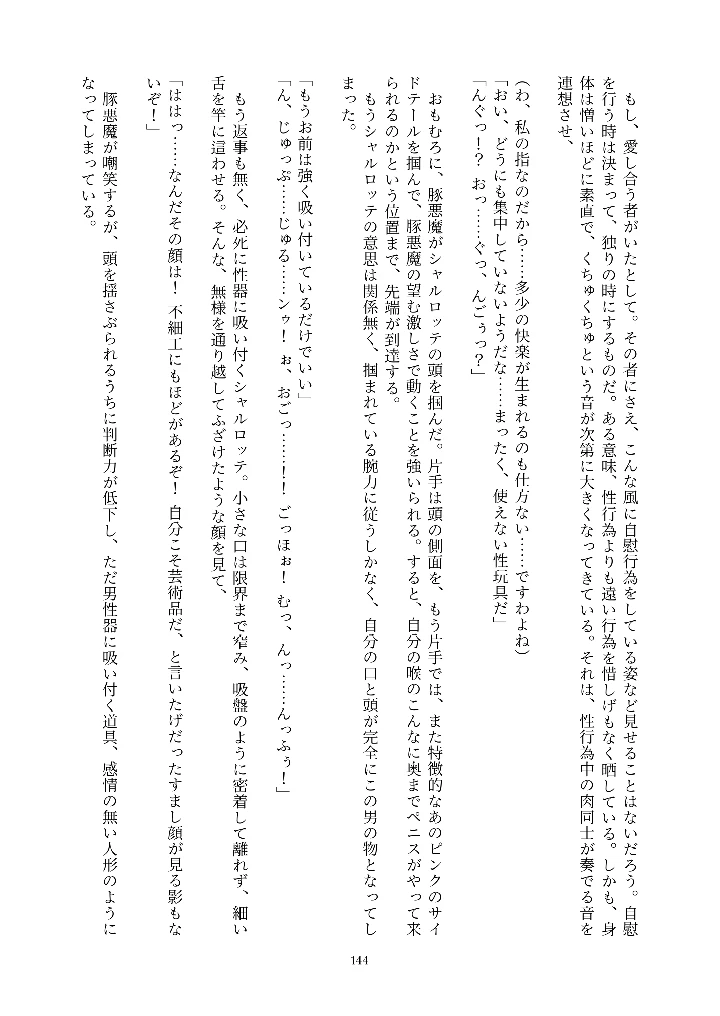 もし、愛し合う者がいたとして。その者にさえ、こんな風に自慰行為をしている姿など見せることはないだろう。自慰
を行う時は決まって、独りの時にするものだ。ある意味、性行為よりも遠い行為を惜しげもなく晒している。しかも、身
体は憎いほどに素直で、くちゅくちゅという音が次第に大きくなってきている。それは、性行為中の肉同士が奏でる音を
連想させ、
（わ、私の指なのだから……多少の快楽が生まれるのも仕方ない……ですわよね）
「おい、どうにも集中していないようだな……まったく、使えない性玩具だ」
「んぐっ！？　おっ……ぐっ、んごぅっ？」
おもむろに、豚悪魔がシャルロッテの頭を掴んだ。片手は頭の側面を、もう片手では、また特徴的なあのピンクのサイ
ドテールを掴んで、豚悪魔の望む激しさで動くことを強いられる。すると、自分の喉のこんなに奥までペニスがやって来
られるのかという位置まで、先端が到達する。
もうシャルロッテの意思は関係無く、掴まれている腕力に従うしかなく、自分の口と頭が完全にこの男の物となってし
まった。
「もうお前は強く吸い付いているだけでいい」
「ん、じゅっぷ……じゅる……ンッ！　ぉ、おごっ……！！　ごっほぉ！　むっ、んっ……んっふぅ！」
もう返事も無く、必死に性器に吸い付くシャルロッテ。小さな口は限界まで窄み、吸盤のように密着して離れず、細い
舌を竿に這わせる。そんな、無様を通り越してふざけたような顔を見て、
「ははっ……なんだその顔は！　不細工にもほどがあるぞ！　自分こそ芸術品だ、と言いたげだったすまし顔が見る影もな
いぞ！」
豚悪魔が嘲笑するが、頭を揺さぶられるうちに判断力が低下し、ただ男性器に吸い付く道具、感情の無い人形のように
なってしまっている。
144